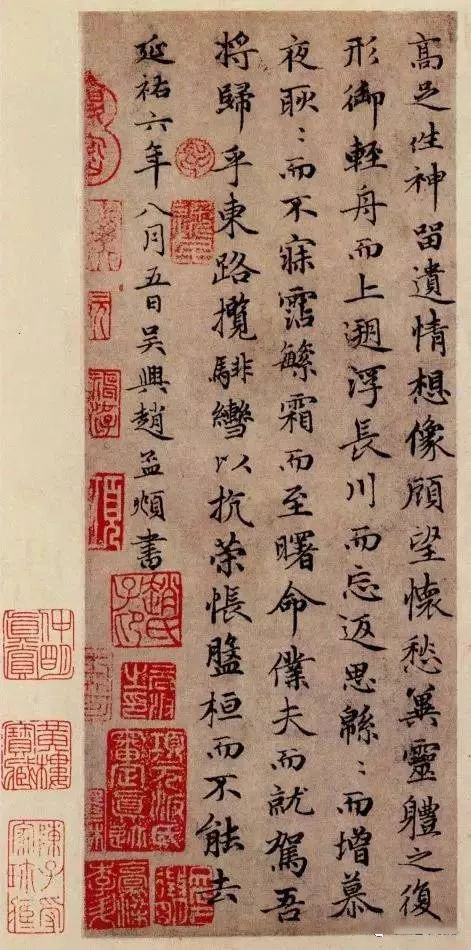 高足往神留遺情想像顧望懷愁冀靈體之復
形御輕舟而上遡浮長川而忘返思緜:而增慕
夜耿:而不寐霑繁霜而至曙命僕夫而就駕吾
將歸乎東路攬騑轡以抗策悵盤桓而不能去
延祐六年八月五日吳興趙孟頫書
趙氏子昂
項元汴氏審定真跡